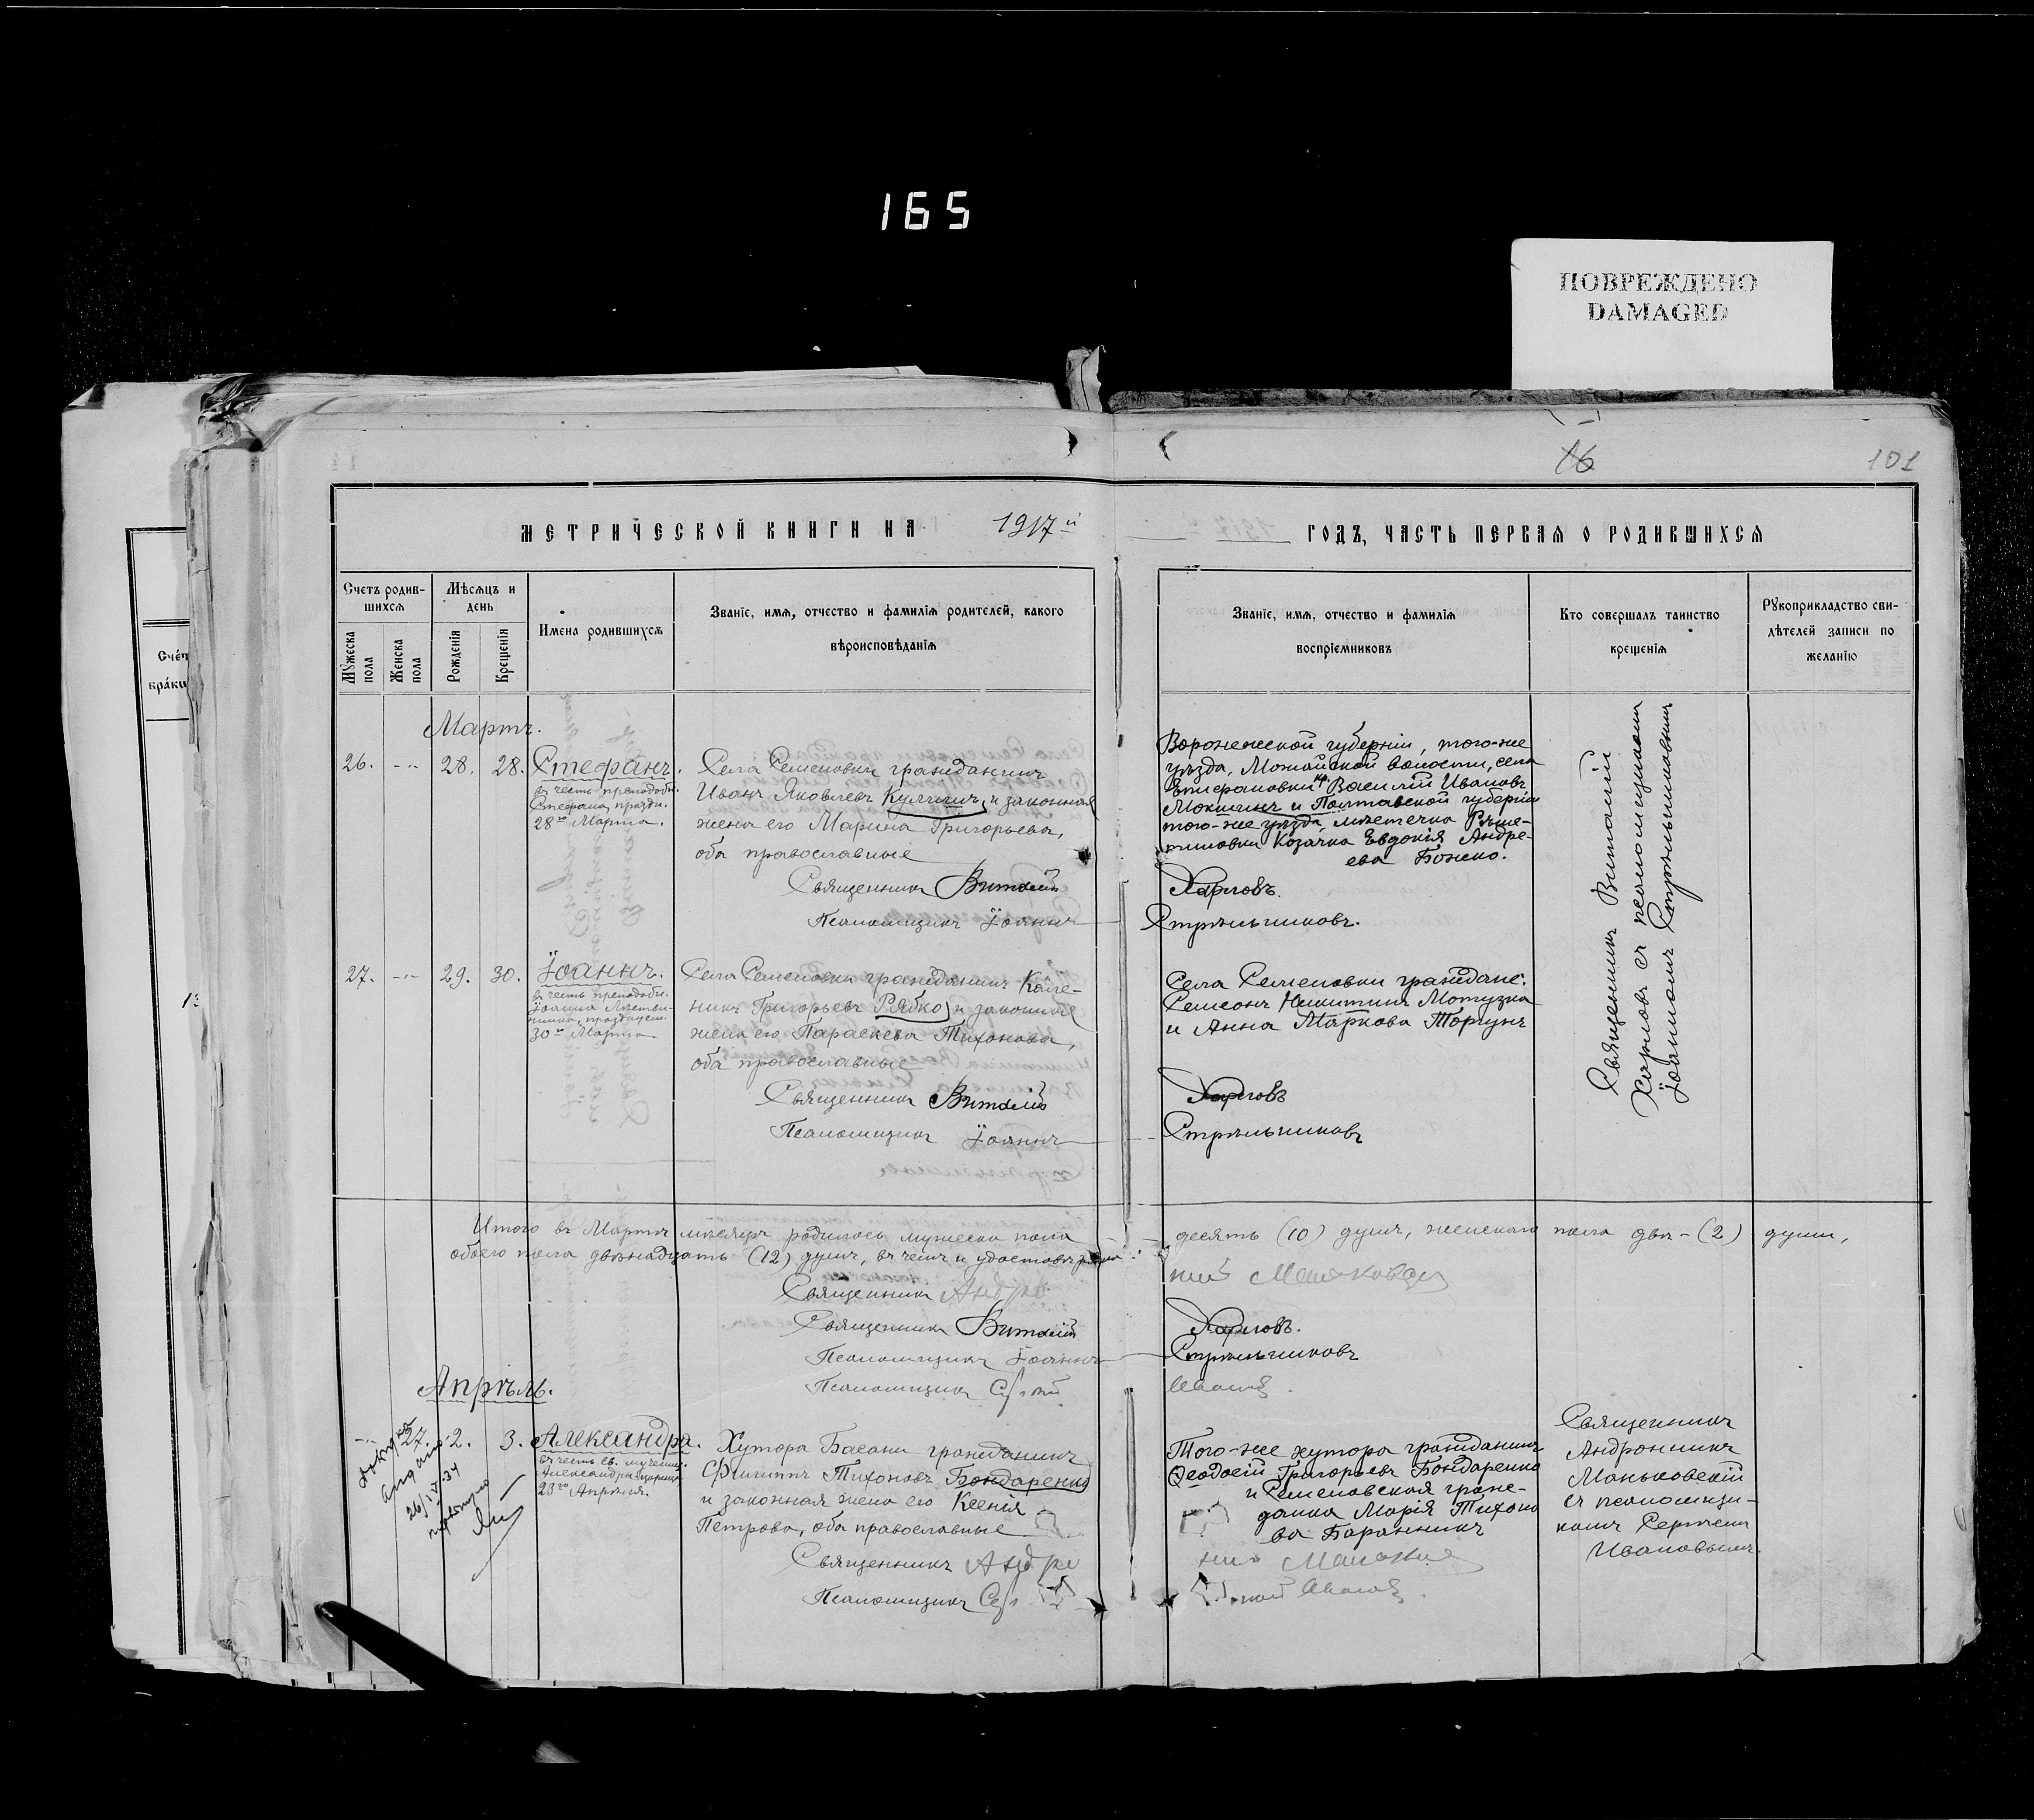 165
ПОВРЕЖДЕНО
DAMAGED
16
101
МЕТРИЧЕСКОЙ КНИГИ НА 1917й ГОДЪ, ЧАСТЬ ПЕРВАЯ О РОДИВШИХСЯ
Счетъ родив-
шихся
Мужеска пола
Женска пола
Мѣсяцъ и
день
Рожденія
Крещенія
Имена родившихся
Званіе, имя, отчество и фамилія родителей, какого
вѣроисповѣданія
Званіе, имя, отчество и фамилія
воспріемниковъ
Кто совершалъ таинство
крещенія
Рукоприкладство сви-
дѣтелей записи по
желанію
Счет
бракъ
13
Мартъ.
26. 28. 28. Стефанъ.
въ честь преподобн.
Стефана, праздн.
28го Марта.
Села Семеновки гражданинъ
Иванъ Яковлевъ и законная
жена его Марина Григорьева,
оба православные
Священникъ Виталій
Псаломщикъ Іоаннъ
Воронежской губерніи, того-же
уѣзда, Можайской волости, села
кр. Василій Ивановъ
и Полтавской губерніи
того-же уѣзда, мѣстечка Рѣше-
тиловки Козачка Евдокія Андре-
ева Божко.
Харловъ.
Стрѣльниковъ.
Священникъ Виталій
Харловъ съ псаломщикомъ
Іоанномъ Стрѣльниковымъ
27. 29. 30. Іоаннъ.
въ честь преподобн.
Іоанна Лѣстви-
чника, празднуем.
30го Марта
Села Семеновки гражданинъ
Григорьевъ Рябко и законная
жена его Параскева Тихонова,
оба православные
Священникъ Виталій
Псаломщикъ Іоаннъ
Села Семеновки граждане:
Симеонъ Никитинъ Мотузка
и Анна Маркова Торгунъ
Харловъ
Стрѣльниковъ
Итого въ Мартѣ мѣсяцѣ родилось мужеска пола десять (10) душъ, женскаго пола двѣ - (2) души,
обоего пола двѣнадцать (12) душъ, въ чемъ и удостовѣряемъ:
Священникъ
Священникъ Виталій Харловъ.
Псаломщикъ Іоаннъ Стрѣльниковъ
Псаломщикъ
Апрѣль.
27
26/IV-34
2. 3. Александра.
въ честь св. мучениц.
Александры царицы,
23го Апрѣля.
Хутора Басани гражданинъ
Филиппъ Тихоновъ Бондаренко
и законная жена его Ксенія
Петрова, оба православные
Священникъ Андро
Псаломщикъ
Того-же хутора гражданинъ
Ѳеодосій Григорьевъ Бондаренко
и Семеновская граж-
данка Марія Тихоно
ва Баранникъ
Священникъ
Андроникъ
Маньковскій
съ псаломщи-
комъ Сергѣемъ
Ивановымъ.